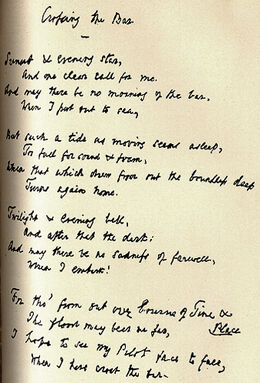 Crossing the Bar
Sunset & evening star,
And one clear call for me.
And may there be no moaning of the bar,
When I put out to sea,
But such a tide as moving seems asleep,
Too full for sound & foam,
When that which drew from out the boundless deep
Turns again home.
Twilight & evening bell,
And after that the dark;
And may there be no sadness of farewell,
When I embark!
For tho' from out our Bourne of Time &
Place
The flood may bear me far,
I hope to see my Pilot face to face,
When I have crost the bar.